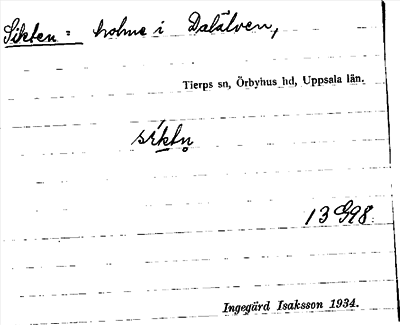 Sikten = holme i Dalälven,
Tierps sn, Örbyhus hd, Uppsala län.
síktn̥
13 G98
Ingegärd Isaksson 1934.